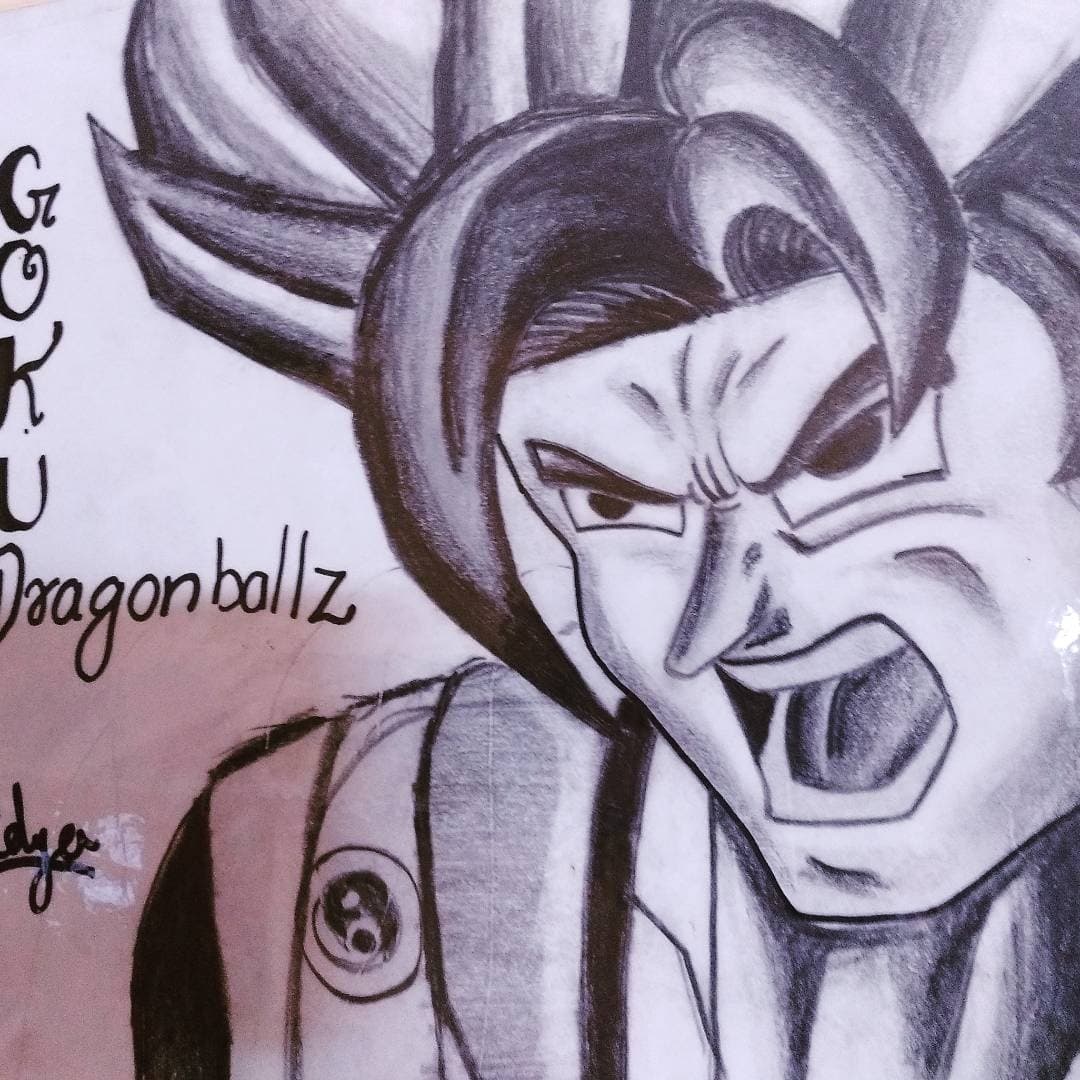 GOKU
Dragonballz